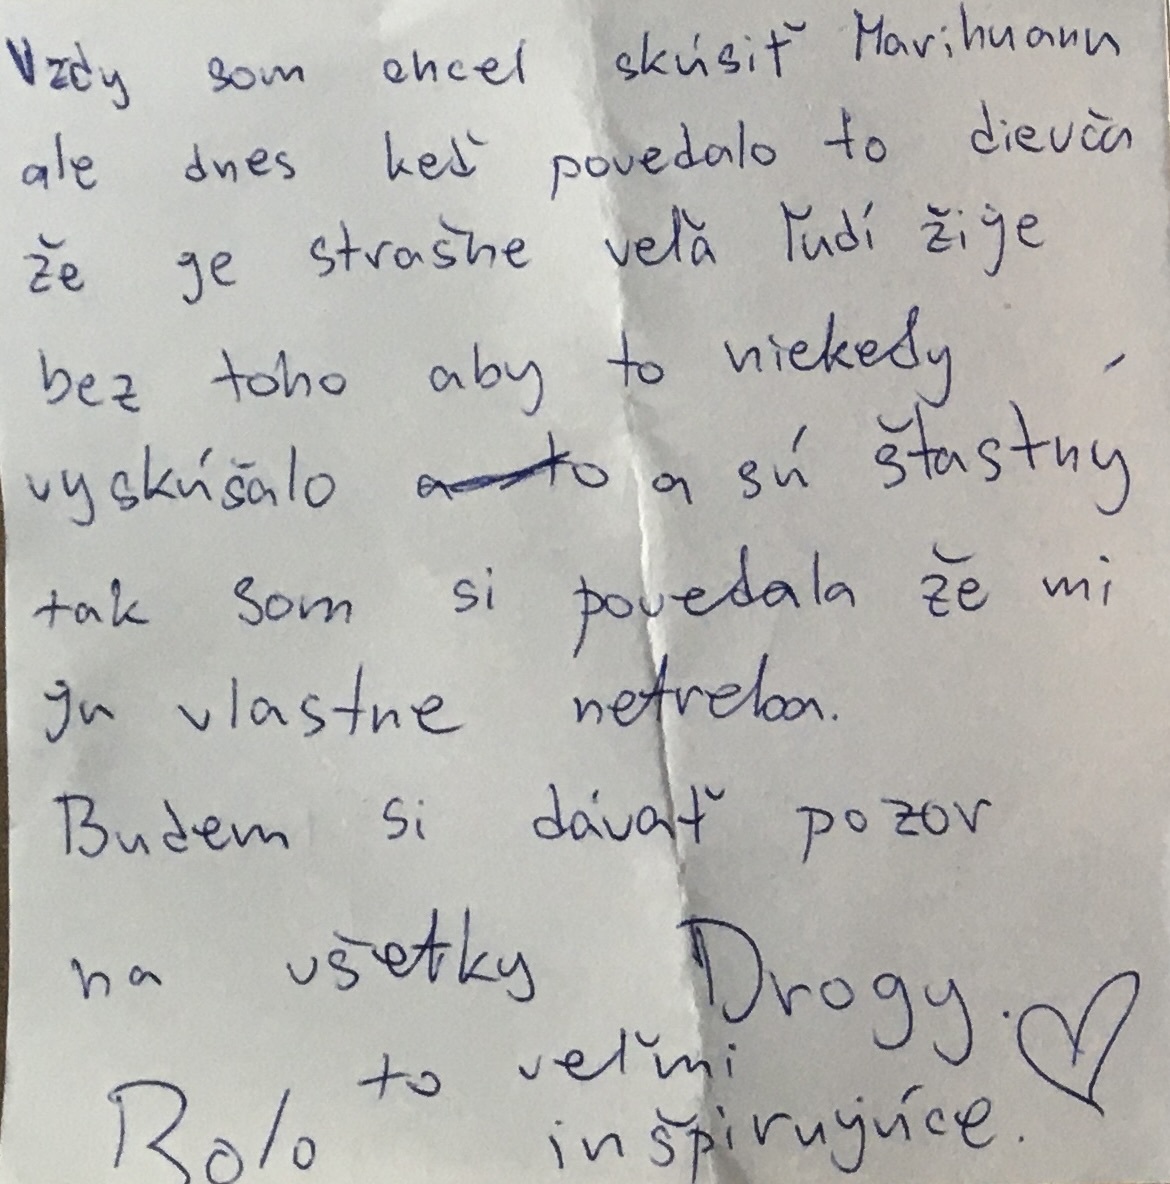 Vzdy som chcel skúsiť Marihuanu
ale dnes keď povedalo to dievča
že je strašne veľa ľudí žije
bez toho aby to niekedy
vyskúšalo a to a sú šťastný
tak som si povedala že mi
ju vlastne netreba.
Budem si dávať pozor
na všetky Drogy.
Bolo to veľmi
inšpirujúce.